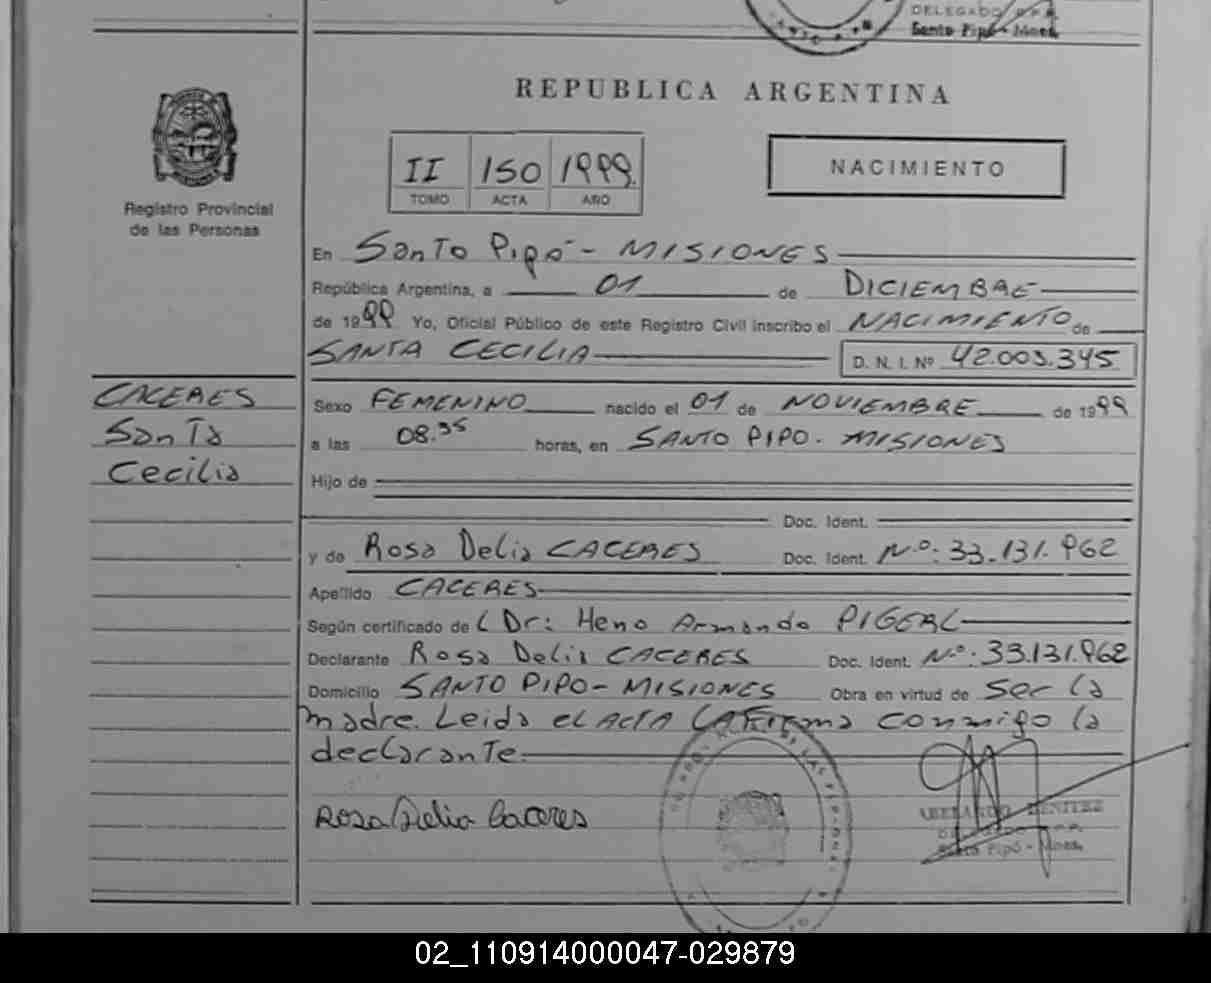 DELEGADO
Santo Pipó - Mnes.
REPUBLICA ARGENTINA
II 150 1999.
TOMO ACTA AÑO
NACIMIENTO
Registro Provincial
de las Personas
En Santo Pipó - MISIONES
República Argentina, a 01 de DICIEMBRE
de 1999 Yo, Oficial Público de este Registro Civil inscribo el NACIMIENTO de
SANTA CECILIA D. N. I. Nº 42.003.345
CACERES
Santa
Cecilia
Sexo FEMENINO nacido el 01 de NOVIEMBRE de 1999
a las 08.35 horas, en SANTO PIPO - MISIONES
Hijo de
Doc. Ident.
y de Rosa Delia CACERES Doc. Ident. Nº: 33.131.962
Apellido CACERES
Según certificado de Dr: Heno Armando
Declarante Rosa Delia CACERES Doc. Ident. Nº: 33.131.962
Domicilio SANTO PIPO - MISIONES Obra en virtud de ser la
madre. Leida el ACTA la Firma conmigo la
declarante.
Rosa Delia Caceres
ABELARDO BENITEZ
Santo Pipó - Mnes.
02_110914000047-029879